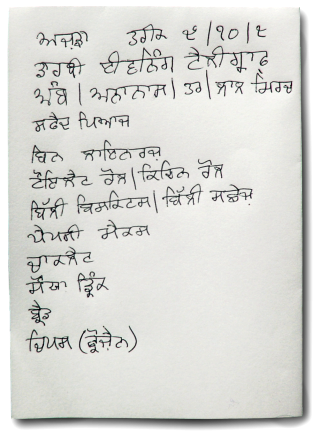 ਅਜਫ਼ਾ ਤਰੀਕ ੬/੧੦/੨
ਡਾਰਬੀ ਈਵਨਿੰਗ ਟੈਲੀਗ੍ਰਾਫ
ਅੰਬ | ਅਨਾਨਾਸ | ਤਰ | ਲਾਲ ਮਿਰਚ
ਸਫੇਦ ਪਿਆਜ
ਬਿਨ ਲਾਇਨਰਜ਼
ਟੌਇਲੈਟ ਰੋਲ | ਕਿਚਿਨ ਰੋਲ
ਬਿੱਲੀ ਬਿਸਕਿਟਸ | ਬਿੱਲੀ ਸਛੇਜ਼
ਪੈਪਸੀ ਮੈਕਸ
ਚਾਕਲੈਟ
ਸੌਖਾ ਡ੍ਰਿੰਕ
ਬ੍ਰੈਡ
ਚਿਪਸ (ਫ੍ਰੋਜ਼ੈਨ)